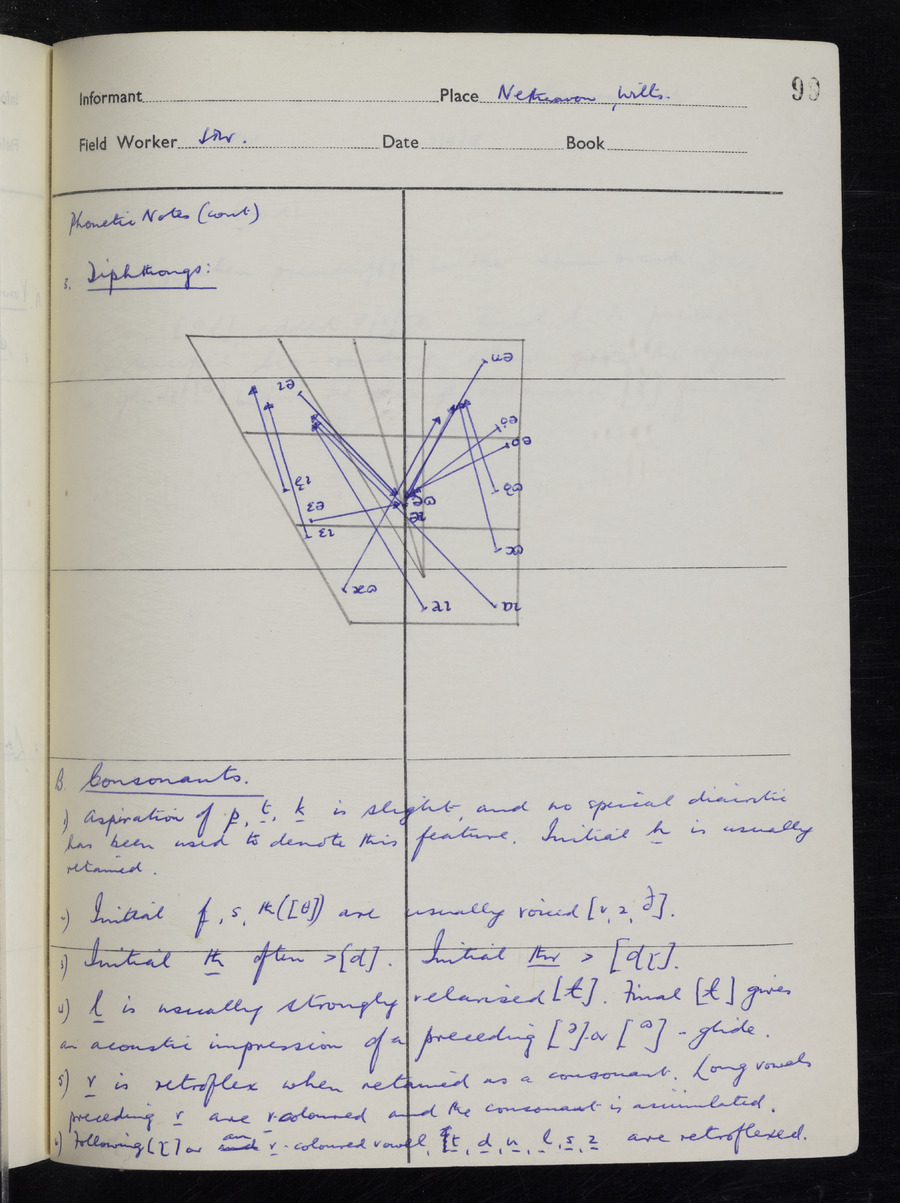 99
Informant Place Netheravon, Wilts.
Field Worker Date Book
Phonetic Notes (cont)
5. Diphthongs:
B. Consonants.
1) Aspiration of p, t, k is slight, and no special diacritic
has been used to denote this feature. Initial h is usually
retained.
2) Initial f, s, th ([θ]) are usually voiced [v, z, ð].
3) Initial th often >[d]. Initial thr > [dɽ].
4) l is usually strongly velarised [ɫ]. Final [ɫ] gives
an acoustic impression of a preceding [ᵊ] or [ᵚ] - glide.
5) r is retroflex when retained as a consonant. Long vowels
preceding r are r-coloured and the consonant is assimilated.
6) Following [ɽ] or an r-coloured vowel, t, d, n, l, s, z are retroflexed.